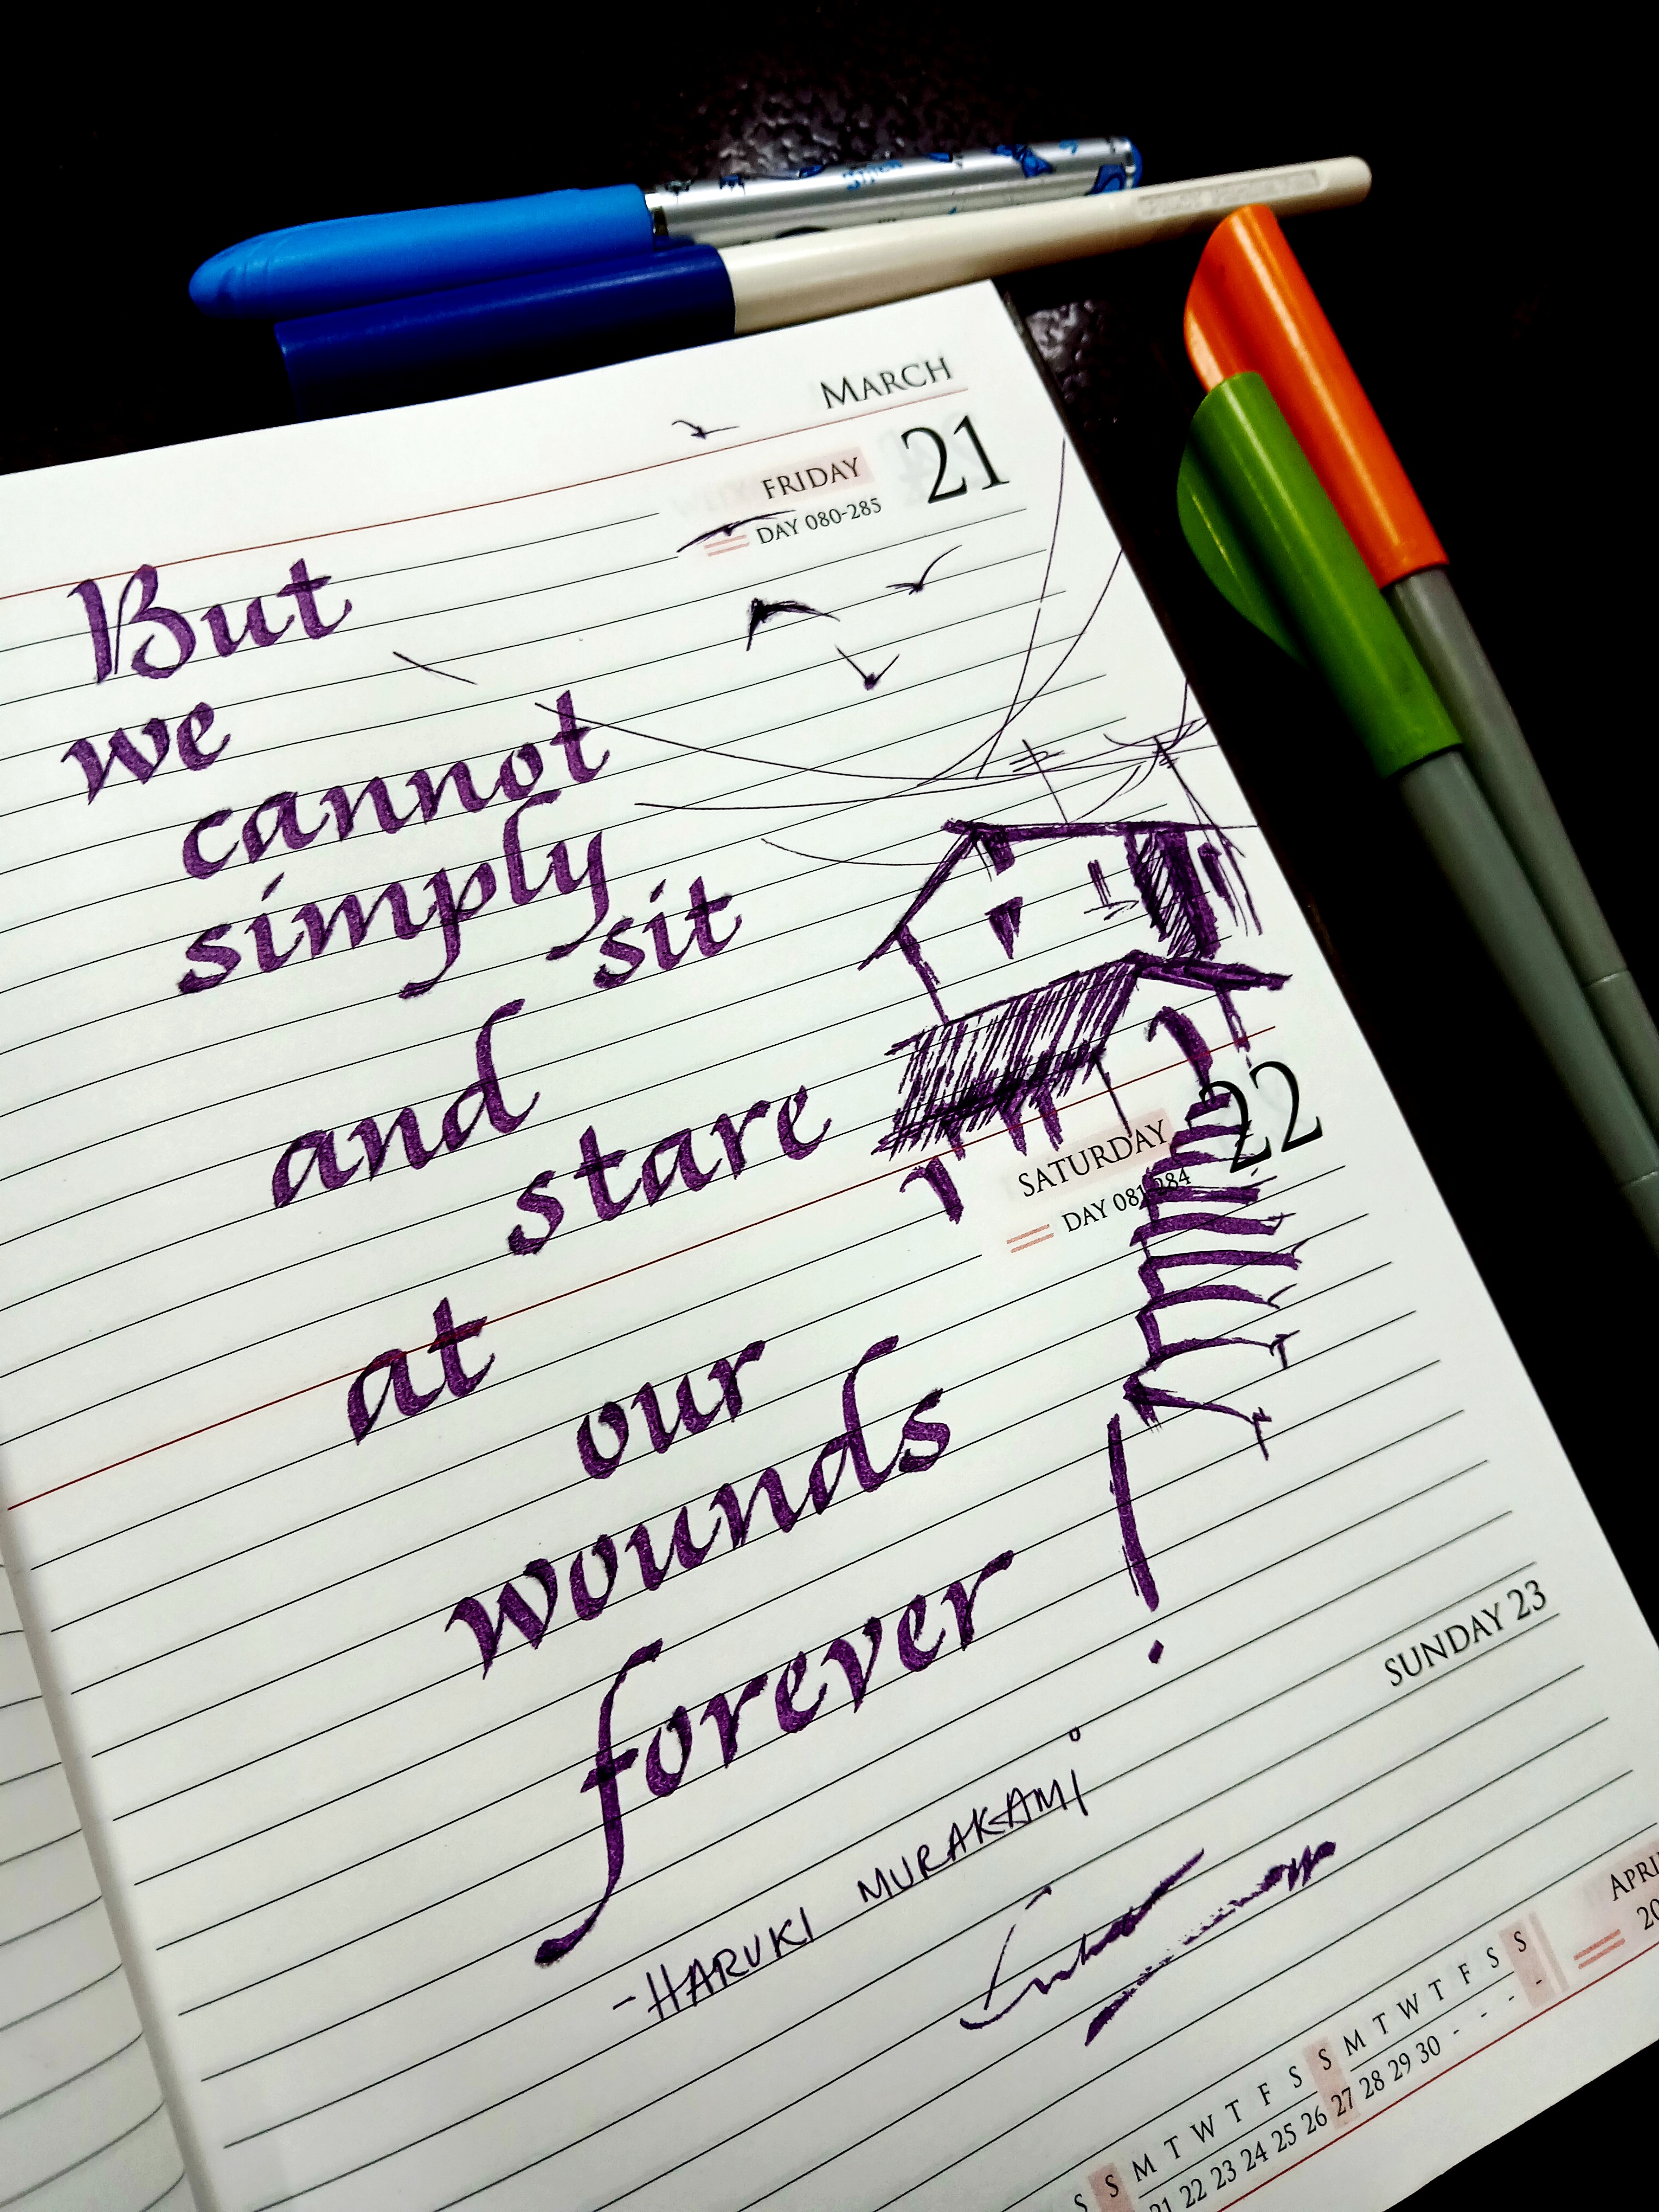 MARCH
FRIDAY 21
DAY 080-285
But
we
cannot
simply
sit
and
stare
SATURDAY 22
DAY 081-284
at
our
wounds
forever !
SUNDAY 23
-HARUKI MURAKAMI
APRI
20
S M T W T F S S M T W T F S S
21 22 23 24 25 26 27 28 29 30 - - - -